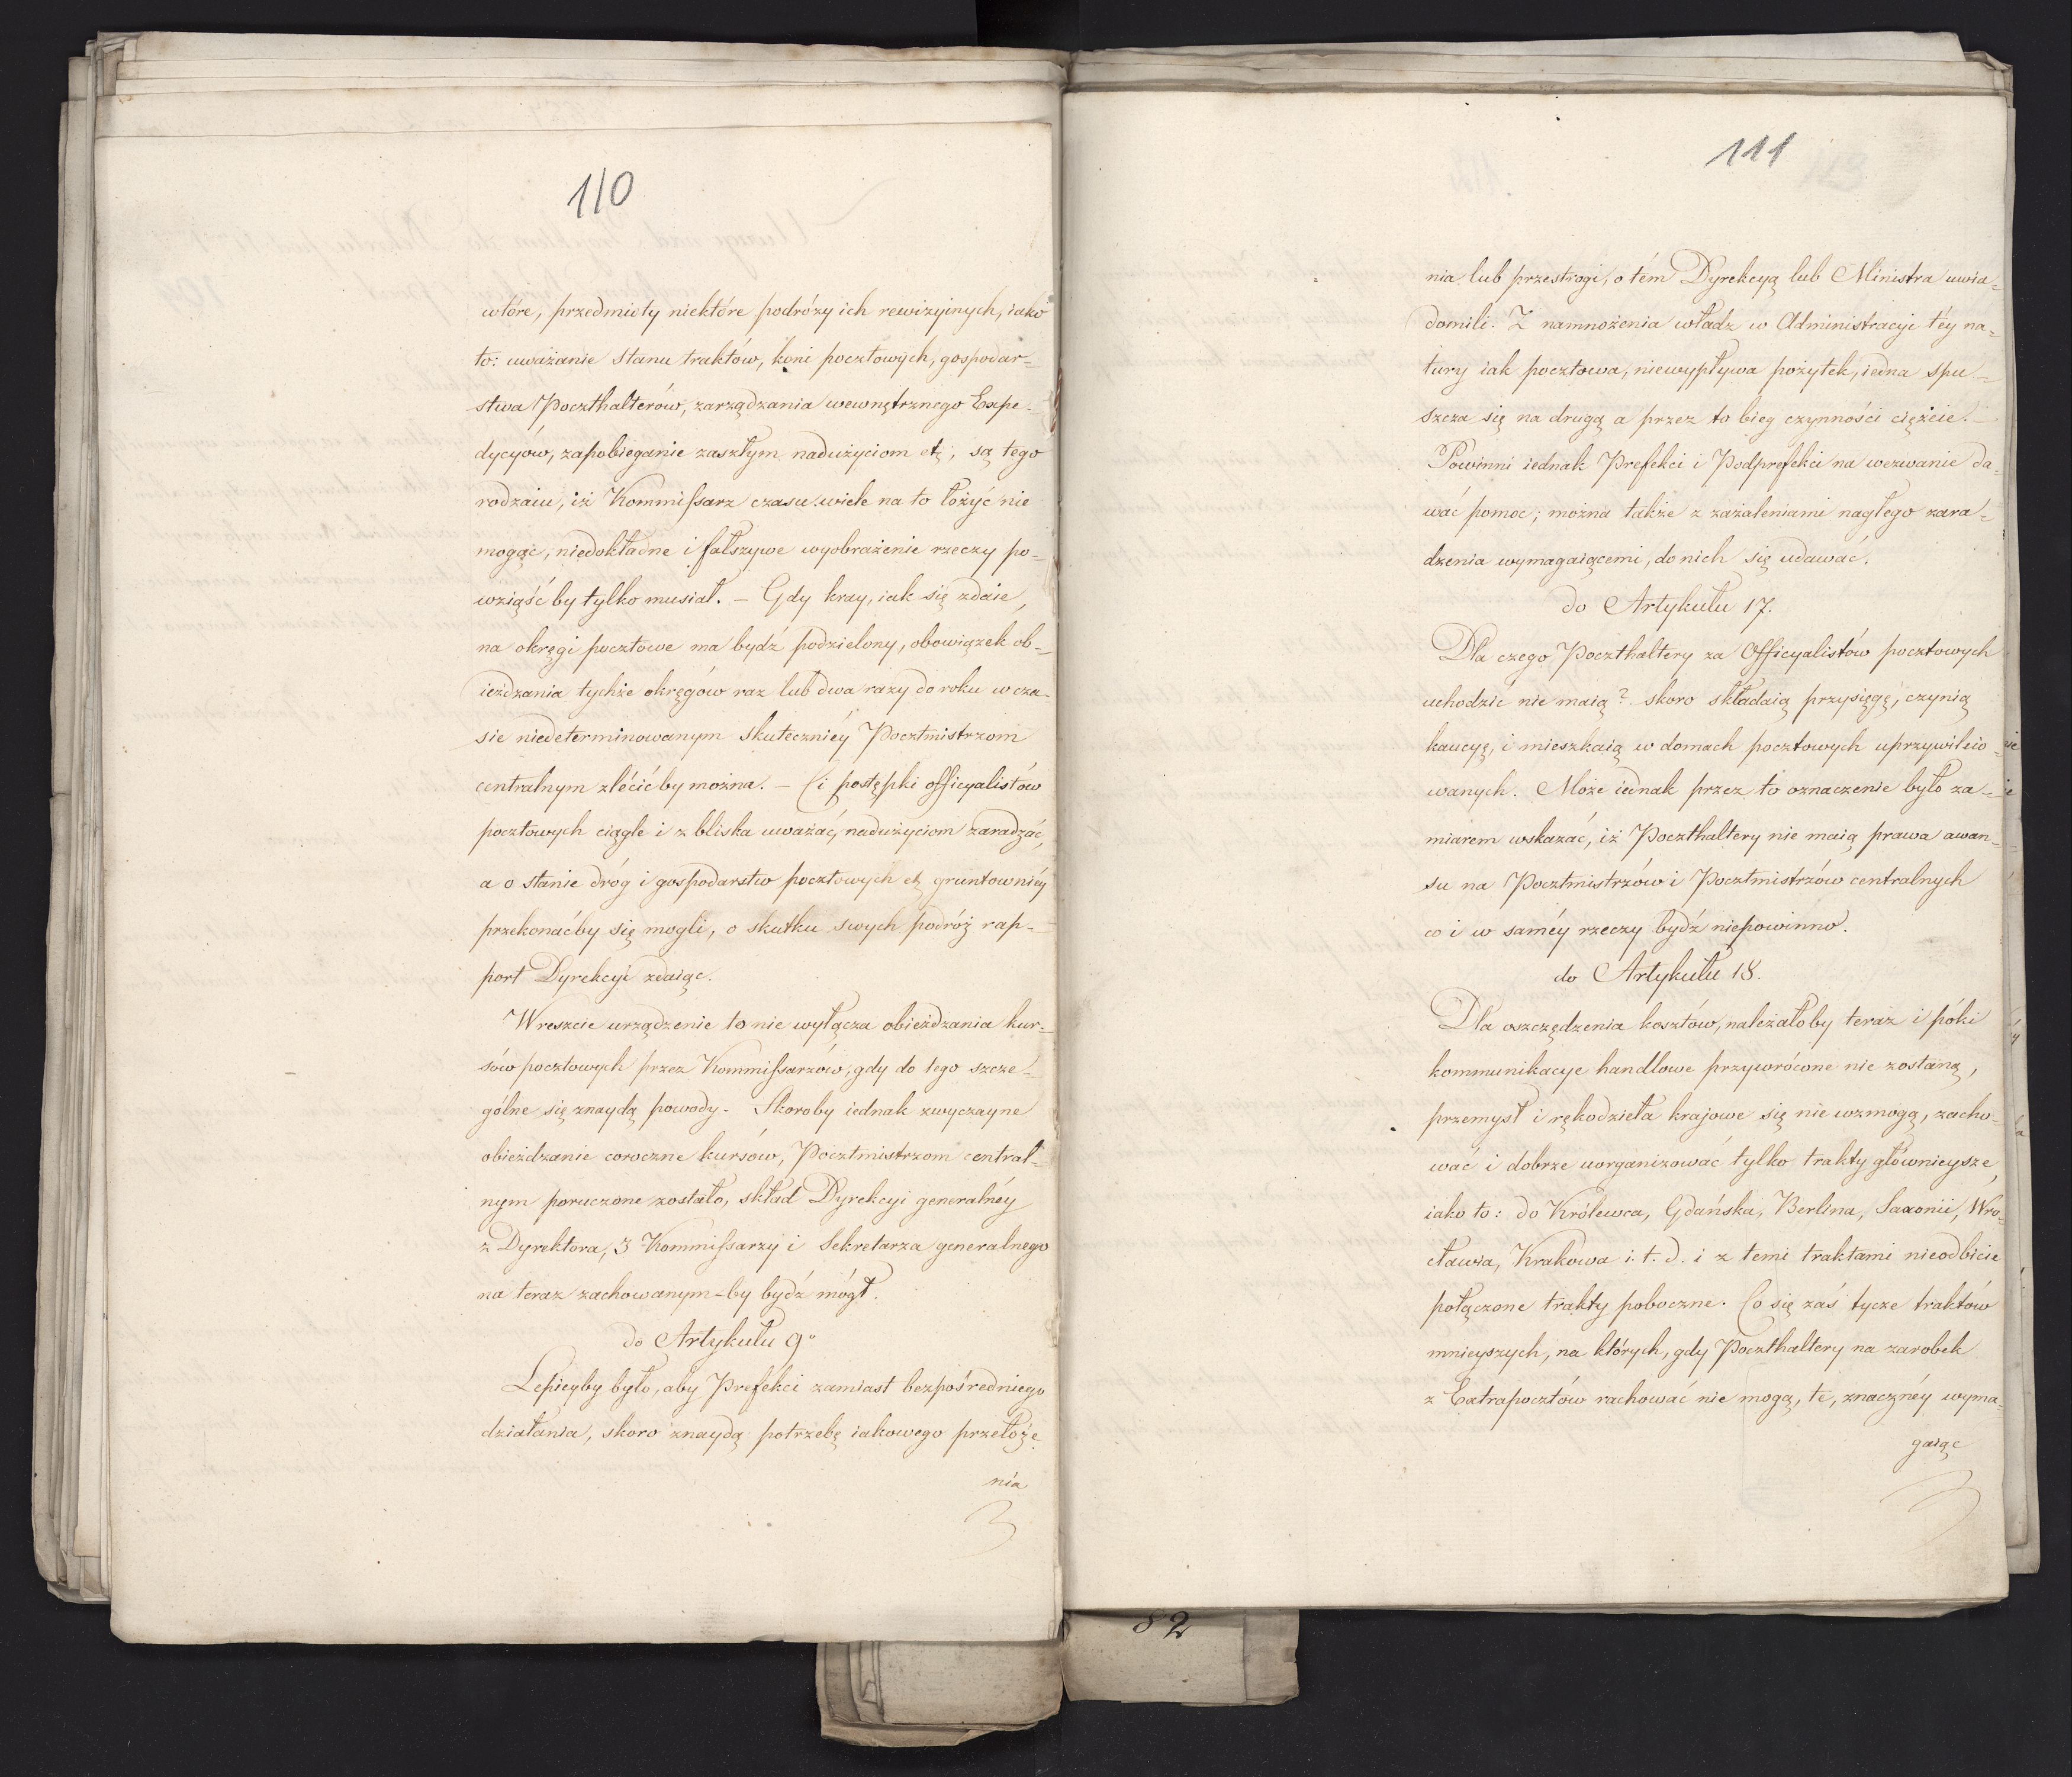 110
wtóre, przedmioty niektóre podróży ich rewizyinych, iako
to: uważanie stanu traktów, koni pocztowych, gospodar=
stwa Poczthalterów, zarządzania wewnętrznego Expe-
dycyów, zapobieganie zaszłym nadużyciom etc, są tego
rodzaiu, iż Kommissarz czasu wiele na to łożyć nie
mogąc, niedokładne i fałszywe wyobrażenie rzeczy po=
wziąść by tylko musiał. – Gdy kray, iak się zdaie,
na okręgi pocztowe ma bydź podzielony, obowiązek ob=
ieżdzania tychże okręgów raz lub dwa razy do roku w cza-
sie niedeterminowanym skuteczniéy Pocztmistrzom
centralnym zlécić by można. – Ci postępki officyalistów
pocztowych ciągle i z bliska uważać, nadużyciom zaradzać,
a o stanie dróg i gospodarstw pocztowych etc gruntowniéy
przekonaćby się mogli, o skutku swych podróż rap=
port Dyrekcyi zdaiąc.
Wreszcie urządzenie to nie wyłącza obieżdzania kur=
sów pocztowych przez Kommissarzów, gdy do tego szcze=
gólne się znaydą powody. Skoroby iednak zwyczayne
obieżdzanie coroczne kursów, Pocztmistrzom central=
nym poruczone zostało, skład Dyrekcyi generalnéy
z Dyrektora, 3 Kommissarzy i Sekretarza generalnego
na teraz zachowanym-by bydź mógł.
do Artykułu 9º
Lepieyby było, aby Prefekci zamiast bezpośredniego
działania, skoro znaydą potrzebę iakowego przełoże
nia
111
nia lub przestrogi, o tém Dyrekcyą lub Ministra uwia=
domili. Z namnożenia władz w Administracyi téy na=
tury iak pocztowa, niewypływa pożytek, iedna spu=
szcza się na drugą a przez to bieg czynności cięžeie. –
Powinni iednak Prefekci i Podprefekci na wezwanie da=
wać pomoc; można także z zażaleniami nagłego zara=
dzenia wymagaiącemi, do nich się udawać.
do Artykułu 17.
Dla czego Poczthaltery za Officyalistów pocztowych
uchodzic nie maią? skoro składaią przysięgę, czynią
kaucyę, i mieszkaią w domach pocztowych uprzywileio=
wanych. Może iednak przez to oznaczenie było za=
miarem wskazać, iż Poczthaltery nie maią prawa awan=
su na Pocztmistrzów i Pocztmistrzów centralnych
co i w saméy rzeczy bydź niepowinno.
do Artykułu 18.
Dla oszczędzenia kosztów, należałoby teraz i póki
kommunikacye handlowe przywrócone nie zostaną,
przemysł i rękodzieła krajowe się nie wzmogą, zacho=
wać i dobrze uorganizować tylko trakty główneysze,
iako to: do Królewca, Gdańska, Berlina, Saxonii, Wro=
cławia, Krakowa i. t. d. i z temi traktami nieodbicie
połączone trakty poboczne. Co się zaś tycze traktów
mnieyszych, na których, gdy Poczthaltery na zarobek
z Extrapocztów rachować nie mogą, te, znacznéy wyma=
gaiąc
82